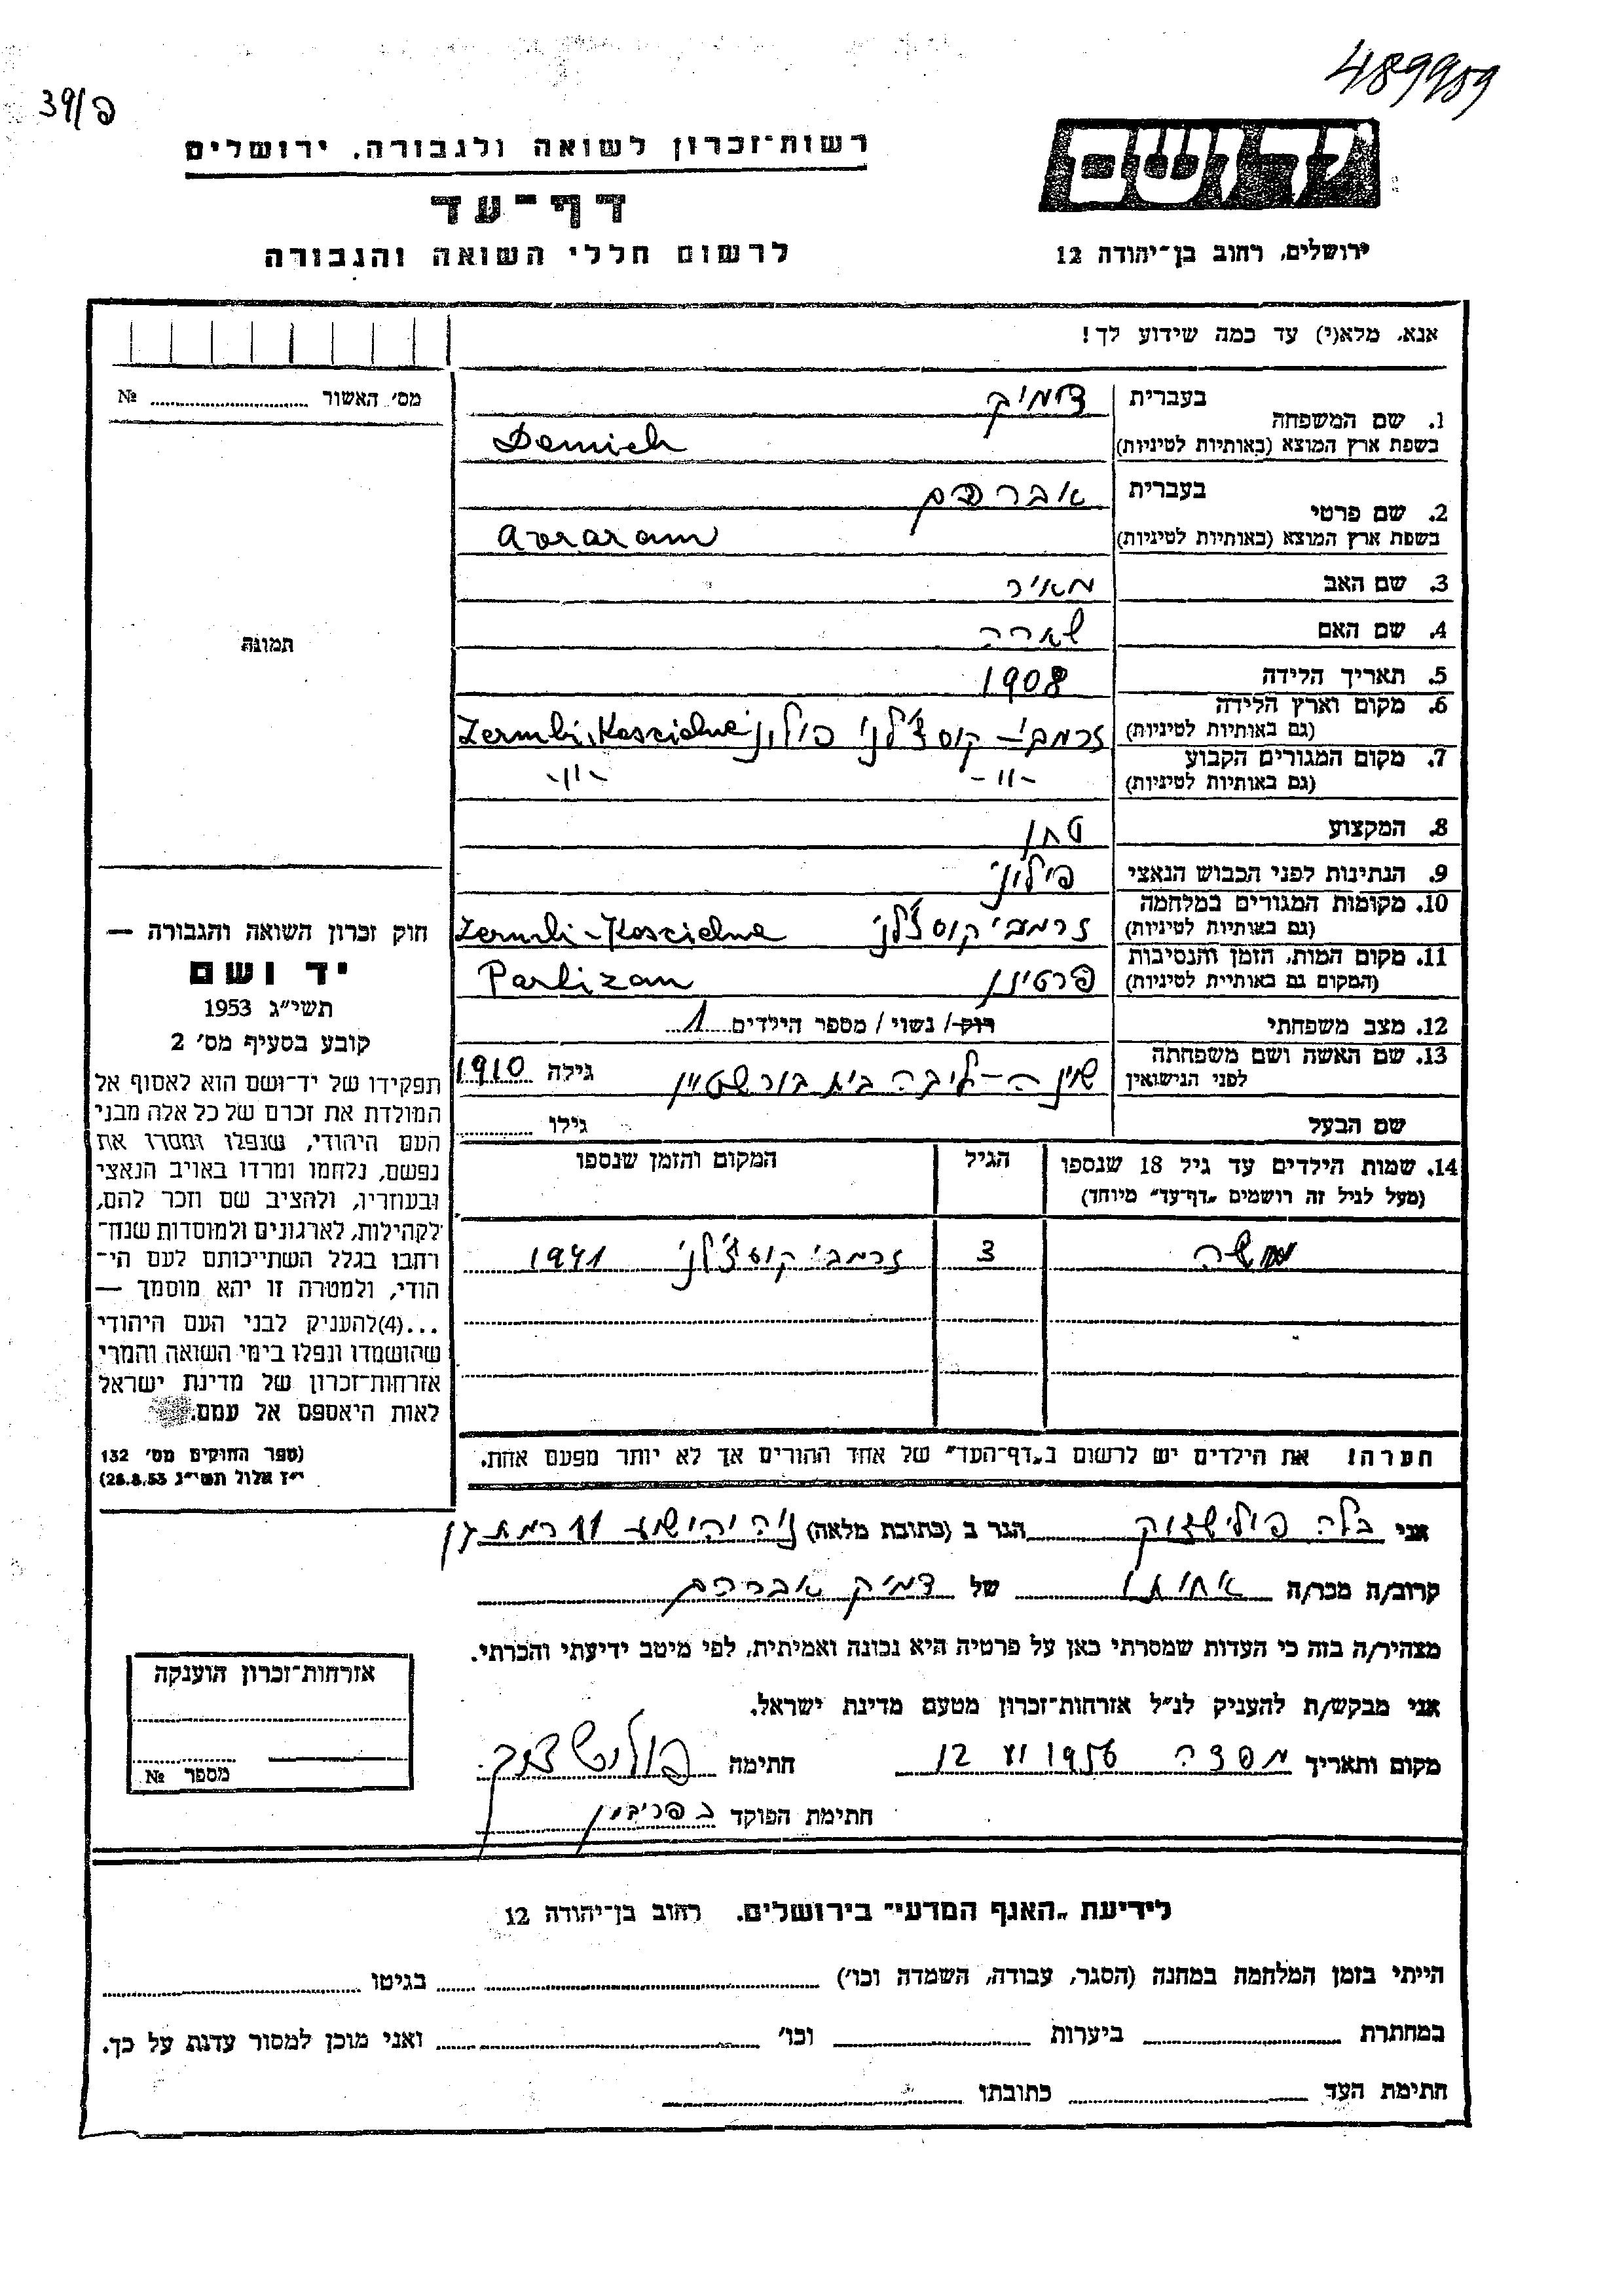 489989
39/פ
רשות־זכרון לשואה ולגבורה, ירושלים
יד ושם
דף־עד
לרשום חללי השואה והגבורה
ירושלים, רחוב בן־יהודה 12
אנא, מלא(י) עד כמה שידוע לך!
מס׳ האשור ........ №
1. שם המשפחה
בעברית דמיק
בשפת ארץ המוצא (באותיות לטיניות) Demich
2. שם פרטי
בעברית אברהם
בשפת ארץ המוצא (באותיות לטיניות) Avraram
3. שם האב מאיר
4. שם האם שארה
5. תאריך הלידה 1908
6. מקום וארץ הלידה
(גם באותיות לטיניות) זרמבי-קוסצ'לני פולין Zermbi-Koscielne
7. מקום המגורים הקבוע
(גם באותיות לטיניות) -"- -"-
8. המקצוע טחן
9. הנתינות לפני הכבוש הנאצי פילוני
10. מקומות המגורים במלחמה
(גם באותיות לטיניות) זרמבי קוסצ'לני Zermbi-Koscielne
11. מקום המות, הזמן והנסיבות
(המקום גם באותיית לטיניות) פרטיזן Partizan
12. מצב משפחתי רוק / נשוי / מספר הילדים 1
13. שם האשה ושם משפחתה
לפני הנישואין שיינה-ליבה בית בורשטיין גילה 1910
שם הבעל גילו ........
14. שמות הילדים עד גיל 18 שנספו
(מעל לגיל זה רושמים „דף־עד״ מיוחד)
הגיל
המקום והזמן שנספו
משה 3 זרמבי קוסצ'לני 1941
הערה! את הילדים יש לרשום ב„דף־העד״ של אחד ההורים אך לא יותר מפעם אחת.
תמונה
חוק זכרון השואה והגבורה —
יד ושם
תשי״ג 1953
קובע בסעיף מס׳ 2
תפקידו של יד־ושם הוא לאסוף אל
המולדת את זכרם של כל אלה מבני
העם היהודי, שנפלו ומסרו את
נפשם, נלחמו ומרדו באויב הנאצי
ובעוזריו, ולהציב שם וזכר להם,
לקהילות, לארגונים ולמוסדות שנח־
רחבו בגלל השתייכותם לעם הי־
הודי, ולמטרה זו יהא מוסמך —
...(4)להעניק לבני העם היהודי
שהושמדו ונפלו בימי השואה והמרי
אזרחות־זכרון של מדינת ישראל
לאות היאספם אל עמם.
(ספר החוקים מס׳ 132
י״ז אלול תשי״ג 28.8.53)
אני בלה פולישצוק הגר ב (כתובת מלאה) נוה יהושע 11 רמת גן
קרוב/ה מכר/ה אחותו של דמיק אברהם
מצהיר/ה בזה כי העדות שמסרתי כאן על פרטיה היא נכונה ואמיתית, לפי מיטב ידיעתי והכרתי.
אני מבקש/ת להעניק לנ״ל אזרחות־זכרון מטעם מדינת ישראל.
מקום ותאריך 12 VI 1956 חתימה פולישצוק
חתימת הפוקד
אזרחות־זכרון הוענקה
מספר №
לידיעת „האגף המדעי״ בירושלים, רחוב בן־יהודה 12
הייתי בזמן המלחמה במחנה (הסגר, עבודה, השמדה וכו׳) ........ בגיטו ........
במחתרת ........ ביערות ........ וכו׳ ........ ואני מוכן למסור עדות על כך.
חתימת העד ........ כתובתו ........